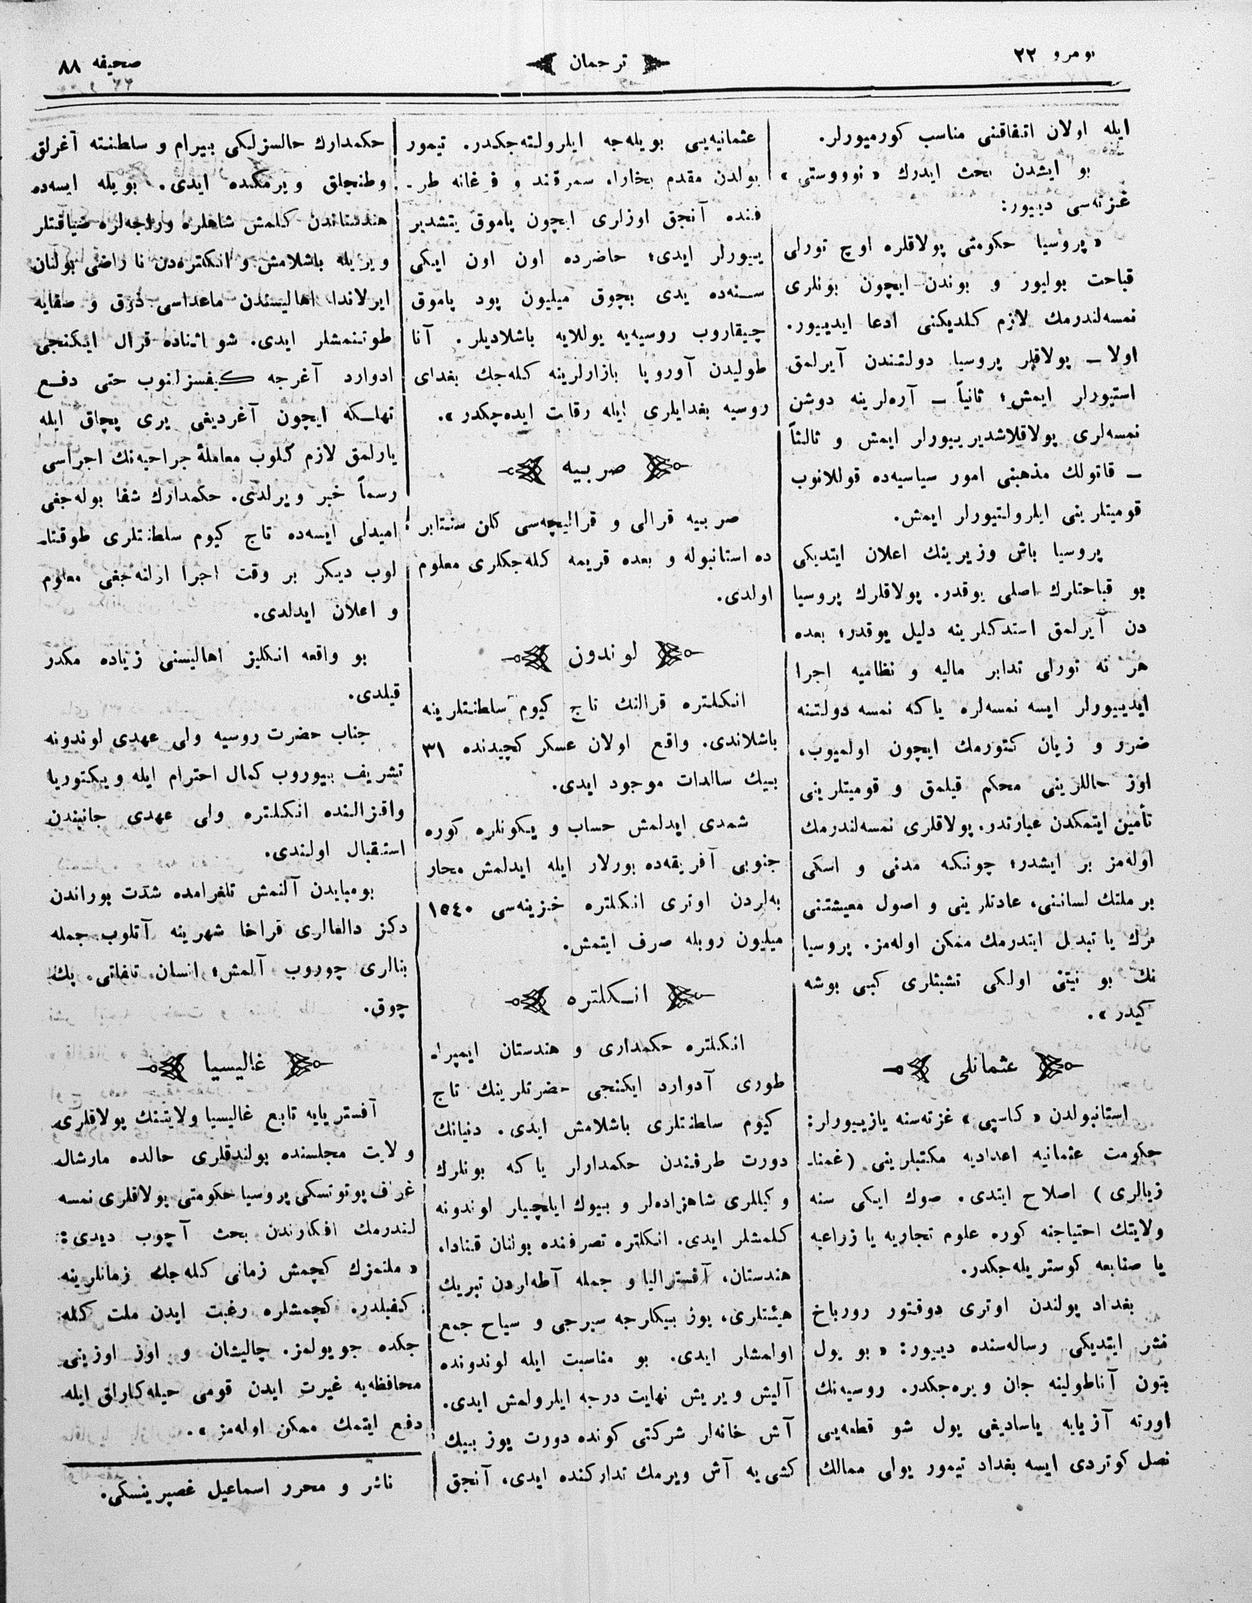 نومرو ٢٢
ترجمان
صحیفه ٨٨
ایله اولان اتفاقنی مناسب كورمیورلر.
بو ایشدن بحث ایدرك «نوووستی»
غزته‌سی دییور:
«پروسیا حكومتی پولاقلره اوچ تورلی
قباحت بولیور و بوندن ایچون بونلری
نمسه‌لندرمك لازم كلدیكنی ادعا ایدییور.
اولا ـ پولاقلر پروسیا دولتندن آیرلمق
استیورلر ایمش؛ ثانیاً ـ آره‌لرینه دوشن
نمسه‌لری پولاقلاشدیرییورلر ایمش و ثالثاً
ـ قاتولك مذهبنی امور سیاسیه‌ده قوللانوب
قومیتلرینی ایلرولتیورلر ایمش.
پروسیا باش وزیرینك اعلان ایتدیكی
بو قباحتلرك اصلی یوقدر. پولاقلرك پروسیا
دن آیرلمق استدكلرینه دلیل یوقدر؛ بعده
هر نه تورلی تدابر مالیه و نظامیه اجرا
ایدیییورلر ایسه نمسه‌لره یاكه نمسه دولتنه
ضرر و زیان كتورمك ایچون اولمیوب،
اوز حاللرینی محكم قیلمق و قومیتلرینی
تأمین ایتمكدن عبارتدر. پولاقلری نمسه‌لندرمك
اوله‌مز بر ایشدر؛ چونكه مدنی و اسكی
بر ملتك لساننی، عادتلرینی و اصول معیشتنی
ترك یا تبدیل ایتدرمك ممكن اوله‌مز. پروسیا
نك بو نیتی اولكی تشبثلری كبی بوشه
كیدر».
عثمانلی
استانبولدن «كاسپی» غزته‌سنه یازییورلر:
حكومت عثمانیه اعدادیه مكتبلرینی (غمنا‌ـ
زیالری) اصلاح ایتدی. صوك ایكی سنه
ولایتك احتیاجنه كوره علوم تجاریه یا زراعیه
یا صنایعه كوستریله‌جكدر.
بغداد یولندن اوتری دوقتور رورباخ
نشر ایتدیكی رساله‌سنده دییور: «بو یول
بتون آناطولینه جان ویره‌جكدر. روسیه‌نك
اورته آزیایه یاسادیغی یول شو قطعه‌یی
نصل كوتردی ایسه بغداد تیمور یولی ممالك
عثمانیه‌یی بویله‌جه ایلرولته‌جكدر. تیمور
یولدن مقدم بخارا، سمرقند و فرغانه طر‌ـ
فنده آنجق اوزلری ایچون پاموق یتشدیر
ییورلر ایدی؛ حاضرده اون اون ایكی
سنه‌ده یدی بچوق میلیون پود پاموق
چیقاروب روسیه‌یه یوللایه باشلادیلر. آنا
طولیدن آوروپا بازارلرینه كله‌جك بغدای
روسیه بغدایلری ایله رقابت ایده‌چكدر».
صربیه
صربیه قرالی و قرالیچه‌سی كلن سنتابر
ده استانبوله و بعده قریمه كله‌جكلری معلوم
اولدی.
لوندون
انكلتره قرالنك تاج كیوم سلطنتلرینه
باشلاندی. واقع اولان عسكر كچیدنده ٣١
بیك سالدات موجود ایدی.
شمدی ایدلمش حساب و یكونلره كوره
جنوبی آفریقه‌ده بورلار ایله ایدلمش محار
به‌لردن اوتری انكلتره خزینه‌سی ١٥٤٠
میلیون روبله صرف ایتمش.
انكلتره
انكلتره حكمداری و هندستان ایمپرا‌ـ
طوری آدوارد ایكنجی حضرتلرینك تاج
كیوم سلطنتلری باشلامش ایدی. دنیانك
دورت طرفندن حكمدارلر یاكه بونلرك
وكیللری شاهزاده‌لر و بیوك ایلچیلر لوندونه
كلمشلر ایدی. انكلتره تصرفنده بولنان قنادا،
هندستان، آفسترالیا و جمله آطه‌لردن تبریك
هیئتلری، یوز بیكلرجه سیرجی و سیاح جمع
اولمشلر ایدی. بو مناسبت ایله لوندونده
آلیش ویریش نهایت درجه ایلرولمش ایدی.
آش خانه‌لر شركتی كونده دورت یوز بیك
كشی‌یه آش ویرمك تداركنده ایدی، آنجق
حكمدارك حالسزلكی بیرام و سلطنته آغرلق
و طنجلق ویرمكده ایدی. بویله ایسه‌ده
هندستاندن كلمش شاهلره و راجه‌لره ضیافتلر
ویریله باشلامش و انكلتره‌دن ناراضی بولنان
ایرلاندا اهالیسندن ماعداسی ذوق و صفایه
طوتنمشلر ایدی. شو اثناده قرال ایكنجی
ادوارد آغرجه كیفسزلنوب حتی دفع
تهلكه ایچون آغردیغی یری پچاق ایله
یارلمق لازم كلوب معاملهٔ جراحیه‌نك اجراسی
رسماً خبر ویرلدی. حكمدارك شفا بوله‌جغی
امیدلی ایسه‌ده تاج كیوم سلطنتلری طوقتا‌ـ
لوب دیكر بر وقت اجرا اولنه‌جغی معلوم
و اعلان ایدلدی.
بو واقعه انكلیز اهالیسنی زیاده مكدر
قیلدی.
جناب حضرت روسیه ولی عهدی لوندونه
تشریف بیوروب كمال احترام ایله ویكتوریا
واقزالنده انكلتره ولی عهدی جانبندن
استقبال اولندی.
بومبایدن آلنمش تلغرامده شدت بوراندن
دكز دالغالری قراخا شهرینه آتلوب جمله
بنالری چوروب آلمش؛ انسان تلفاتی پك
چوق.
غالیسیا
آفستریایه تابع غالیسیا ولایتنك پولاقلری
ولایت مجلسنده بولندقلری حالده مارشال
غراف پوتوتسكی پروسیا حكومتی پولاقلری نمسه
لندرمك افكارندن بحث آچوب دیدی:
«ملتمزك كچمش زمانی كله‌جك زمانلرینه
كفیلدر. كچمشلره رغبت ایدن ملت كله
جكده جویولمز. چالیشان و اوز اوزینی
محافظه‌یه غیرت ایدن قومی حیله‌كارلق ایله
دفع ایتمك ممكن اوله‌مز».
ناشر و محرر اسماعیل غصپرینسكی.